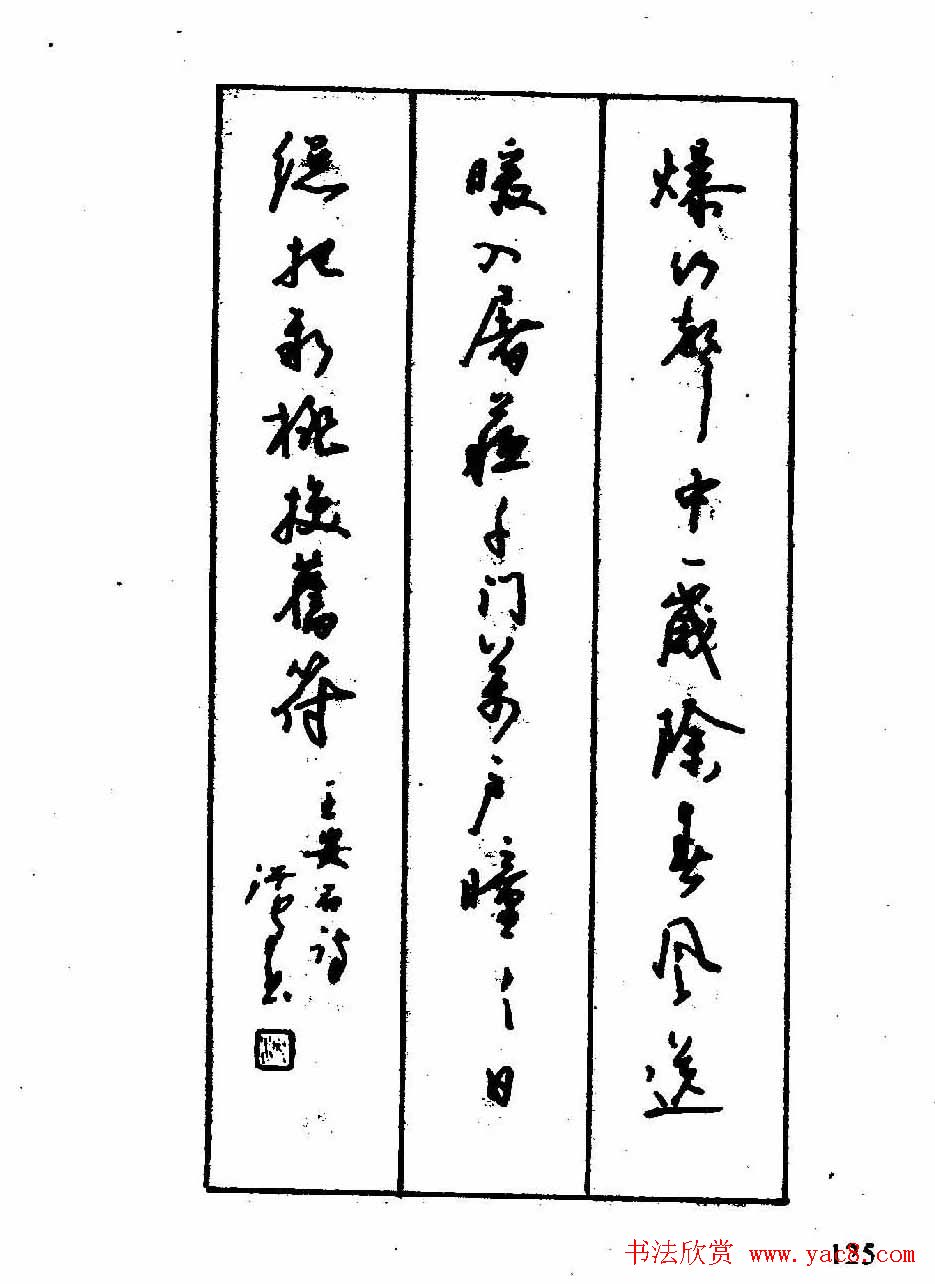 爆竹聲中一歲除春风送
暖入屠蘇千门萬户曈〻日
總把新桃换舊符
王安石诗
125
书法欣赏 www.yac8.com